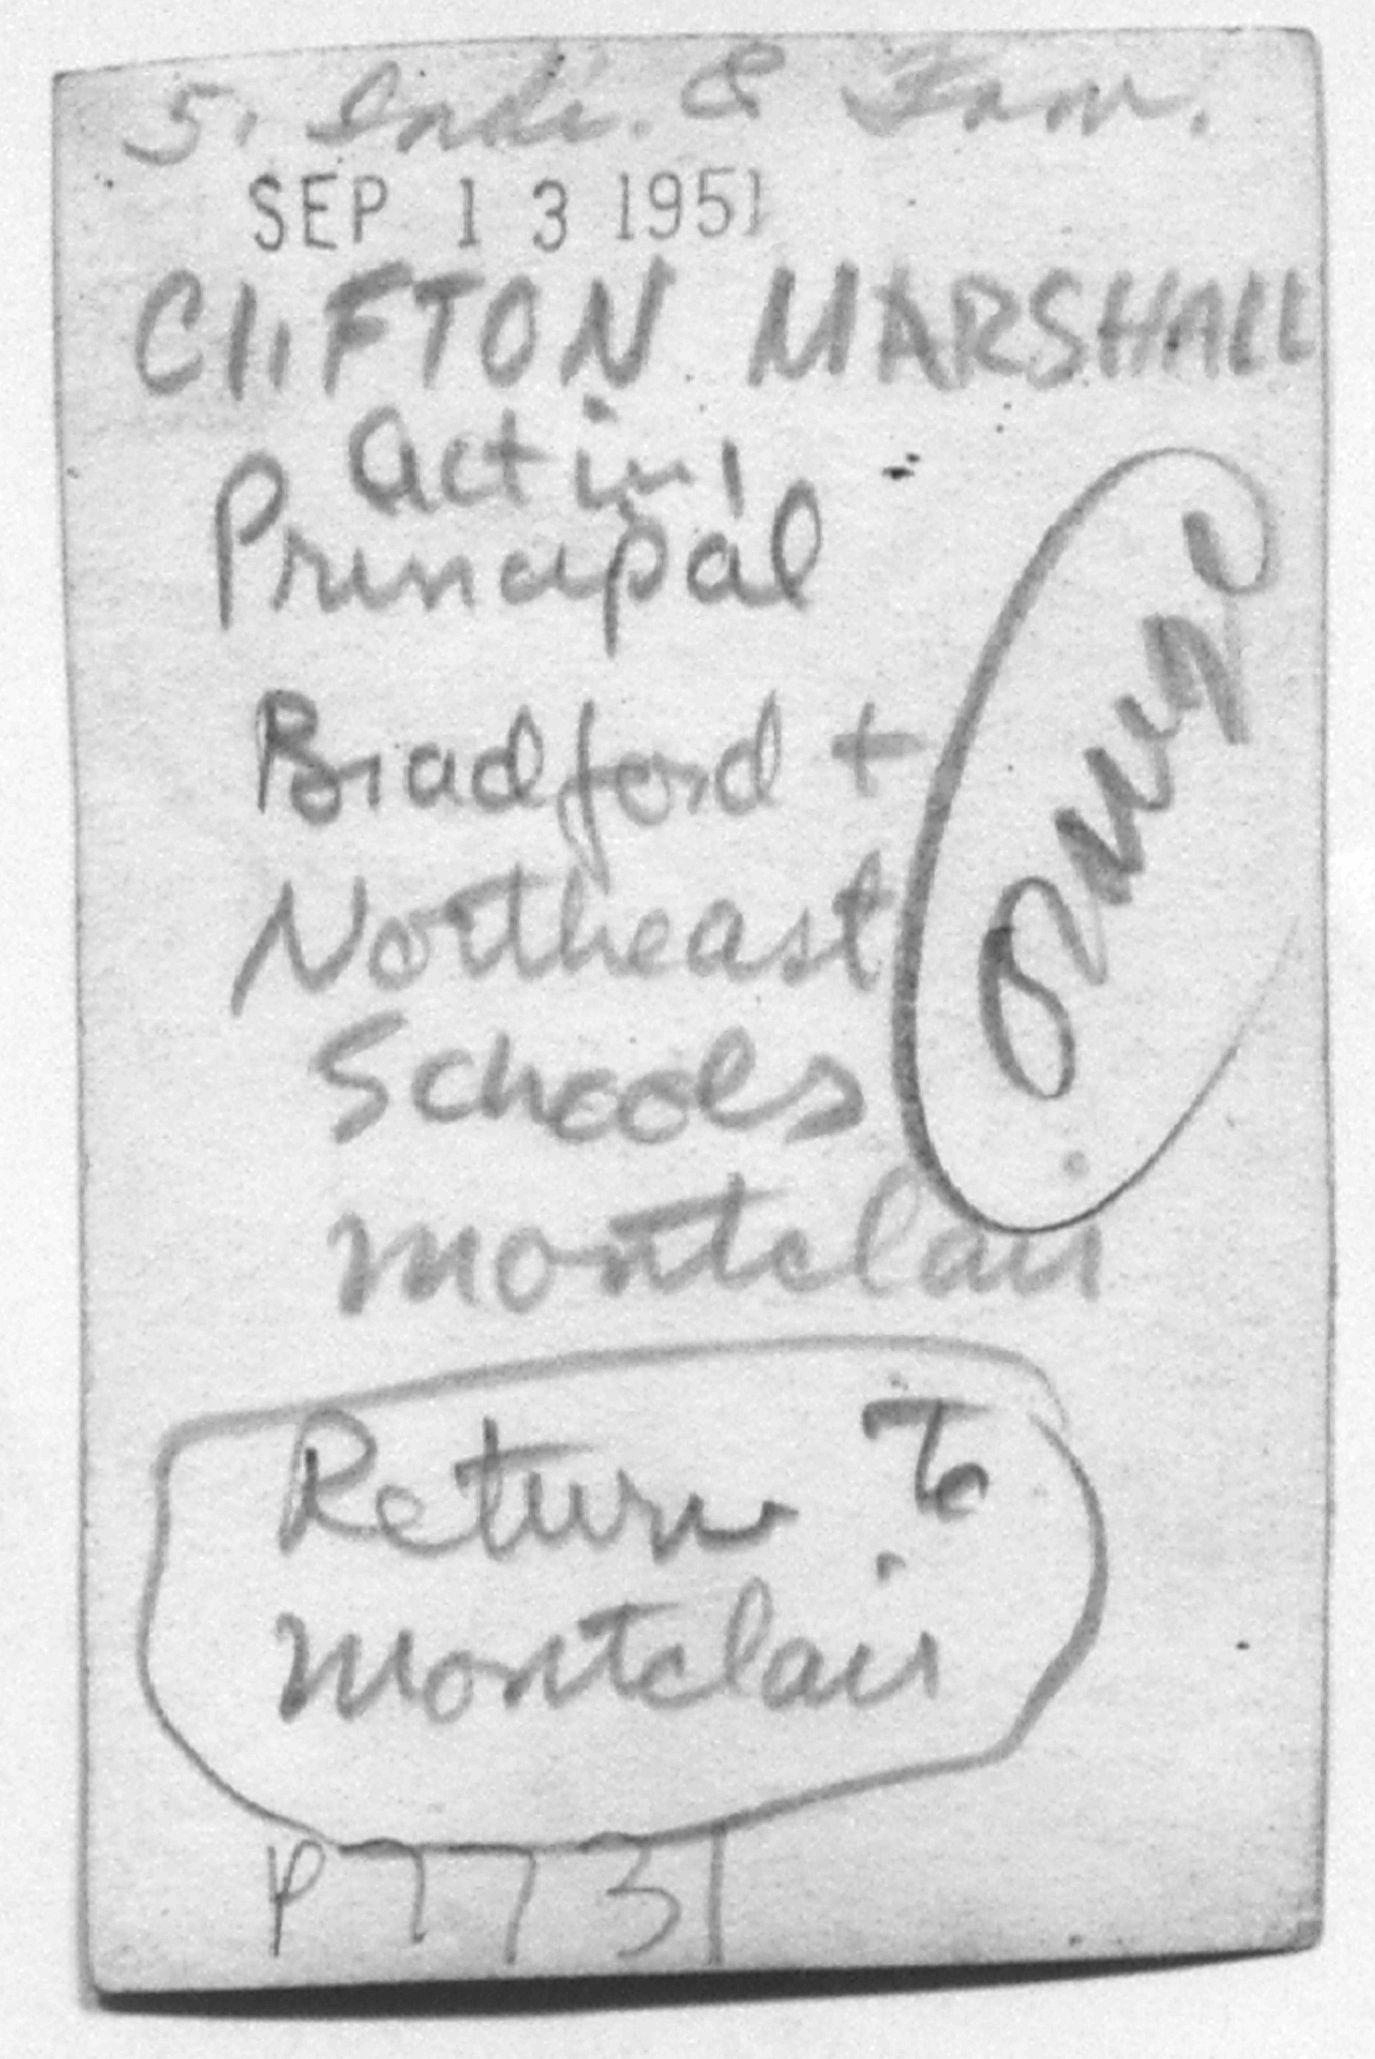 5. Indi. & Fam.
SEP 13 1951
CLIFTON MARSHALL
Actin'
Principal
Bradford +
Northeast
Schools
Montclair
Return To
Montclair
P7731